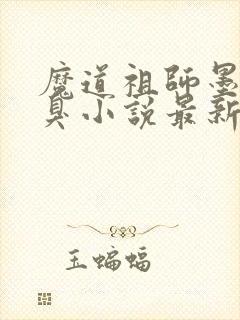 魔道祖師墨
臭小說最新
玉蝙蝠